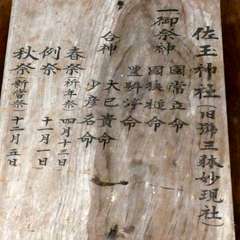 佐玉神社(旧琊三社妙現社)
一御祭神
國常立命
國狭槌命
豊斟渟命
合神
大巳貴命
少彦名命
春祭 祈年祭 四月十三日
例祭 十一月一日
秋祭 新嘗祭 十二月三日